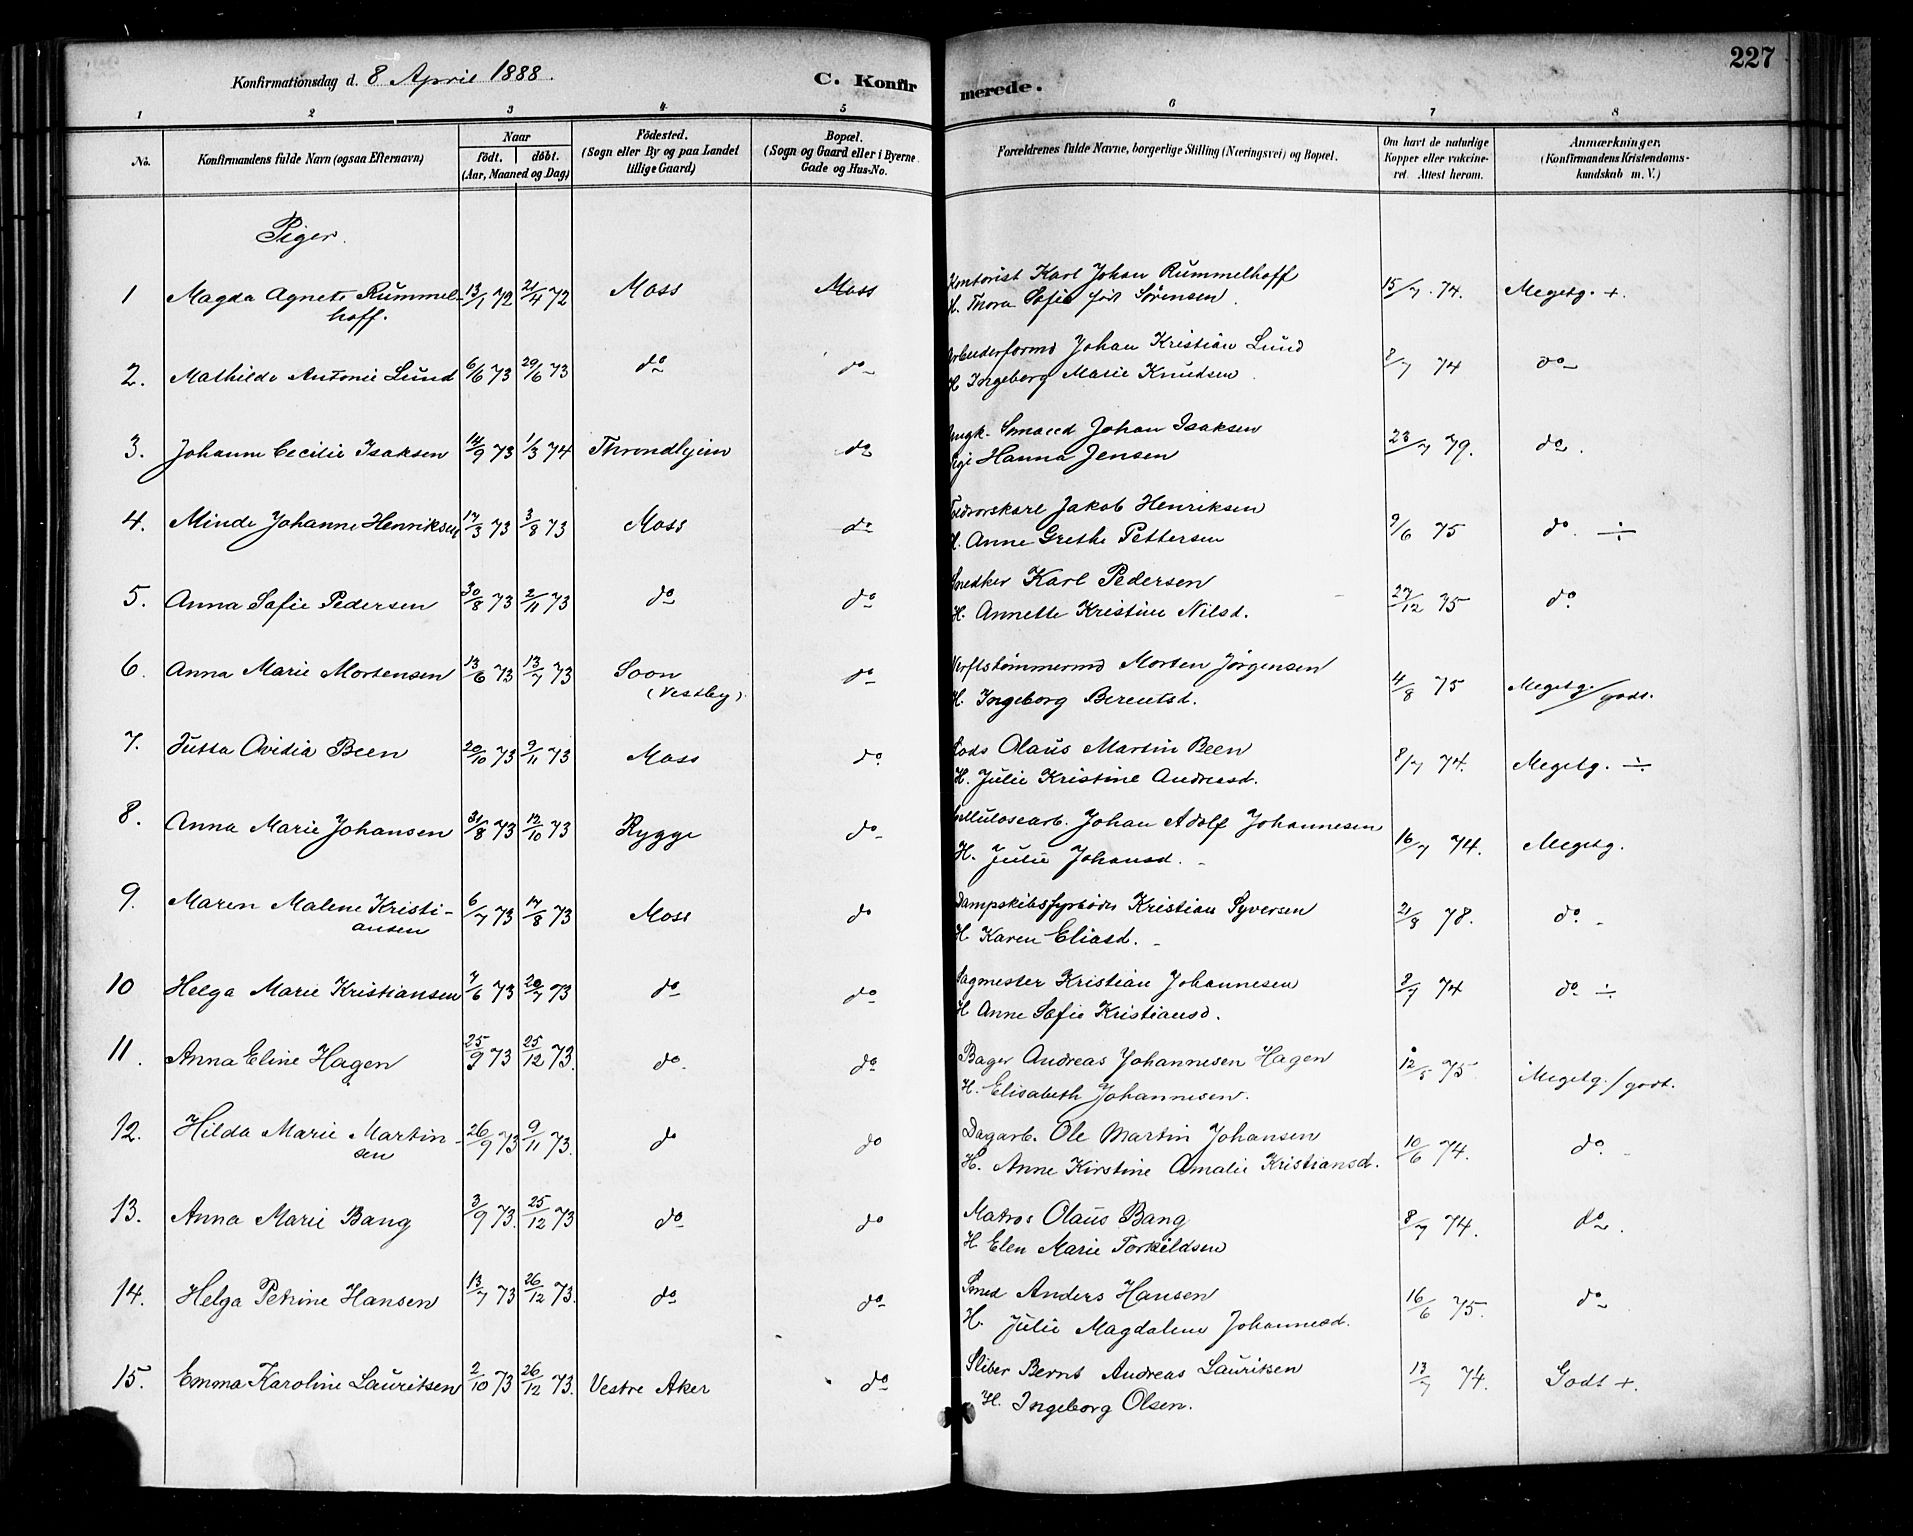 Konfirmationsdag d. 8 April 1888.
C. Konfir
merede.
227
1 2 3 4 5 6 7 8
No.
Konfirmandens fulde Navn (ogsaa Efternavn)
Naar
født. døbt.
(Aar, Maaned og Dag)
Fødested.
(Sogn eller By og paa Landet
tillige Gaard)
Bopæl.
(Sogn og Gaard eller i Byerne
Gade og Hus-No.
Forældrenes fulde Navne, borgerlige Stilling (Næringsvei) og Bopæl.
Om havt de naturlige
Kopper eller vakcine-
ret. Attest herom.
Anmærkninger.
(Konfirmandens Kristendoms-
kundskab m. V.)
Piger.
1 Magda Agnete Rummel- 13/1 72 21/4 72 Moss Moss Kontorist Karl Johan Rummelhoff 15/7. 74. Megetg. +.
hoff. H. Thora Sofie født Sørensen.
2. Mathilde Antonie Lund 6/6 73 29/6 73 do do Arbeiderformd Johan Kristian Lund 8/7 74 do
H Ingeborg Marie Knudsen.
3. Johanne Cecilie Isaksen 14/9 73 1/3 74 Throndhjem do Ungk. Smaed Johan Isaksen 23/7 79. do.
Pige Hanna Jensen
4. Minde Johanne Henriksen 17/3 73 3/8 73 Moss do Jakob Henriksen 9/6 75 do. ÷
H. Anne Grethe Pettersen
5. Anna Sofie Pedersen 30/8 73 2/11 73 do do Snedker Karl Pedersen 27/12 75 do
H. Annette Kristine Nilsd.
6. Anna Marie Mortensen 13/6 73 13/7 73 Soon do Verftstømmermd Morten Jørgensen 4/8 75 Megetg./godt.
(Vestby) H. Ingeborg Berentsd.
7. Jutta Ovidia Been 20/10 73 9/11 73 Moss do. Lods Olaus Martin Been 8/7 74. Megetg. ÷
H. Julie Kristine Andreasd.
8. Anna Marie Johansen 31/8 73 12/10 73 Rygge do Cellulosearb. Johan Adolf Johannesen 16/7 74. Megetg.
H. Julie Johansd.
9. Maren Malene Kristi- 6/7 73 17/8 73 Moss do Dampskibsfyrbøder Kristian Syversen 21/8 78. do.
ansen H Karen Eliasd.
10 Helga Marie Kristiansen 7/6 73 20/7 73 do do Sagmester Kristian Johannesen 2/7 74 do ÷
H Anne Sofie Kristiansd.
11. Anna Eline Hagen 25/9 73 25/12 73. do. do Bager Andreas Johannesen Hagen 12/5 75. Megetg./godt.
H. Elisabeth Johannesen.
12. Hilda Marie Martin- 26/9 73 9/11 73. do do Dagarb. Ole Martin Johansen 10/6 74. do.
sen H. Anne Kirstine Amalie Kristiansd.
13. Anna Marie Bang 3/9 73. 25/12 73 do do Matros Olaus Bang 8/7 74. do.
H Elen Marie Torkildsen
14. Helga Petrine Hansen 13/7 73 26/12 73. do do Smed Anders Hansen 16/6 75. do
H. Julie Magdalene Johannesd.
15. Emma Karoline Lauritsen 2/10 73 26/12 73. Vestre Aker do Sliber Bernt Andreas Lauritsen 13/7 74. Godt +.
H. Ingeborg Olsen.